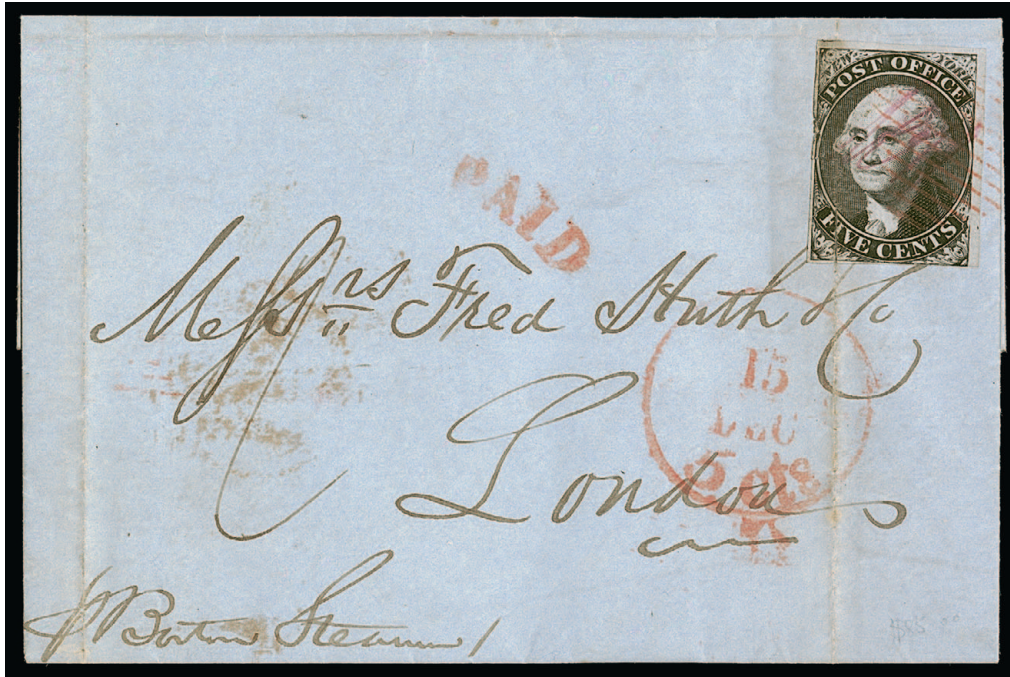 POST OFFICE
FIVE CENTS
PAID
Messrs Fred Huth & Co
London
15
DEC
5 cts
p Boston Steamer